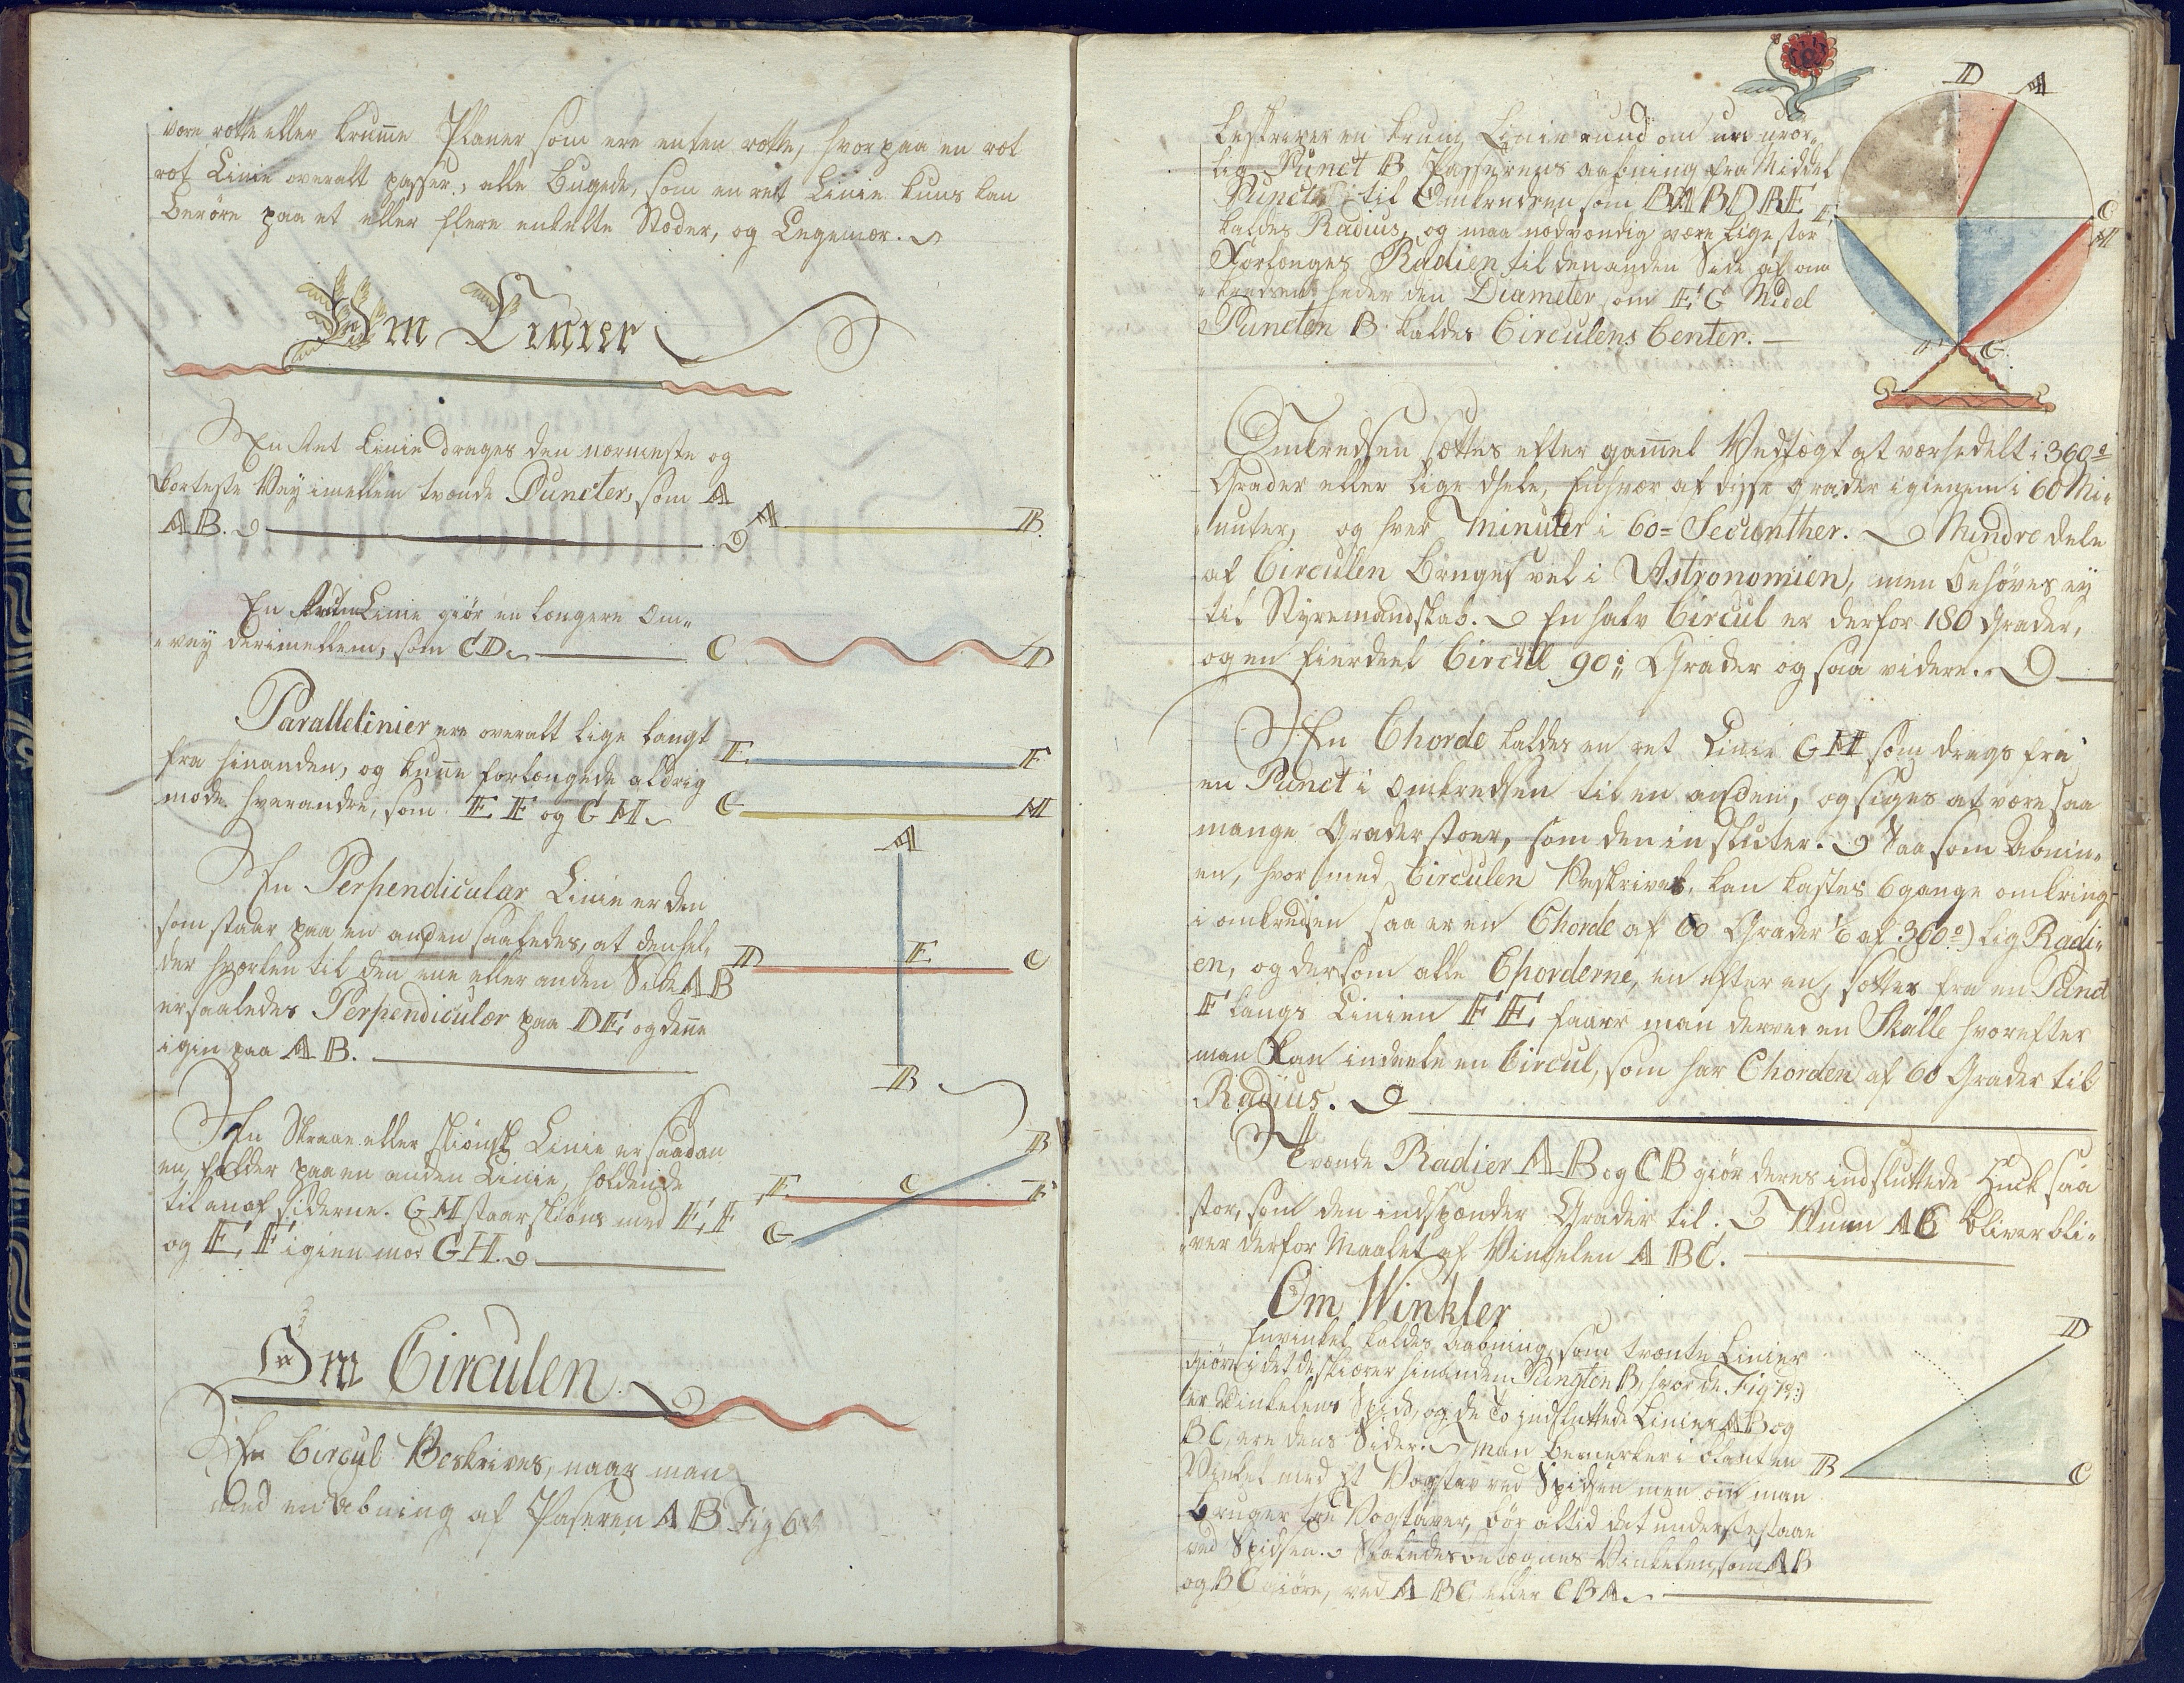 være rætte eller krumme Planer som ere enten rætte, hvorpaa en ræt
ræt Linie overalt passer, eller Bugede, som en ret Linie kuns kan
berøre paa et eller flere enkelte Stæder, og Legemer.
Om Linier
En Ret Linie drages den nærmeste og
korteste Vey imellem tvende Puncter, som A
AB.
A B.
En krum Linie giør en længere Om„
„vey derimellem, som CD.
C D
Parallelinier ere overalt lige langt
fra hinanden, og kune forlængede aldrig
møde hverandre, som EF og GH.
E F
G H
En Perpendicular Linie er den
som staar paa en anden saaledes, at den hel„
der hverken til den ene eller anden Side AB
er saaledes Perpendiculær paa DE, og denne
igien paa AB.
A
D E C
B
En Skraa eller skiønsk Linie er saadan
en, falder paa en anden Linie, holdende
til en af Siderne. GH staar skiøns mod E, F
og E, F igien mod GH.
B
E C F
G
Om Circulen
En Circul Beskrives, naar man
med en Abning af Paseren AB Fig 6
beskriver en krum Linie rund om en uvør„
lig Punct B Passerens aabning fra Middel
Punct til Omkredsen som BA BD BE
kaldes Radius, og maa nødvendig være lige stor
Forlænges Radien til den anden Side af om
kredsen heder den Diameter som E G Midel
Puncten B kaldes Circulens Center.
D A
E C
H
F G
Omkredsen sættes efter gamel Vedtægt at være deelt i 360°
Grader eller lige dehle, Enhver af disse grader igienem i 60 Mi„
„nuter, og hver Minuter i 60= Secunther. Mindre dele
af Circulen Bruges vel i Astronomien, men behøves ey
til Styrmandskab. En halv Circul er derfor 180 Grader,
og en fierdeel Circul 90° Grader og saa videre.
En Chorde kaldes en ret Linie GH som drages fra
en Punct i Omkredsen til en anden, og siges at være saa
mange Grader stoer, som den indsluter. Saasom Abnin„
en, hvor med Circulen Beskrives, kan kastes 6 gange omkring
i omkredsen saa er en Chorde af 60 Grader ⅙ af 360°) lig Radi„
en, og dersom alle Chorderne, en efter en, sættes fra en Punct
F langs Linien FE, faaer man derved en Skalle hvorefter
man kan indeele en Circul, som har Chorden af 60 Grader til
Radius.
Tvende Radier AB og CB giør deres indsluttede Huck saa
stor, som den indspænder Grader til. Buen AC bliver bli„
„ver derfor Maalet af Vinckelen ABC.
Om Winkler
En vinkel kaldes Aabning, som tvente Linier
giøre i det de skiærer hinanden Pungten B, hvor de Fig 7de)
er Vinkelens Spids, og de to indsluttede Linier AB og
BC, ere dens Sider. Man bemerker i blant en
Vinkel med et Bogstav ved Spidsen men om man
bruger tre Bogstaver, bør altid det underste staae
ved Spidsen. Saaledes betegnes Vinkelen, som AB
og BC giøre, ved ABC eller CBA.
D
B C